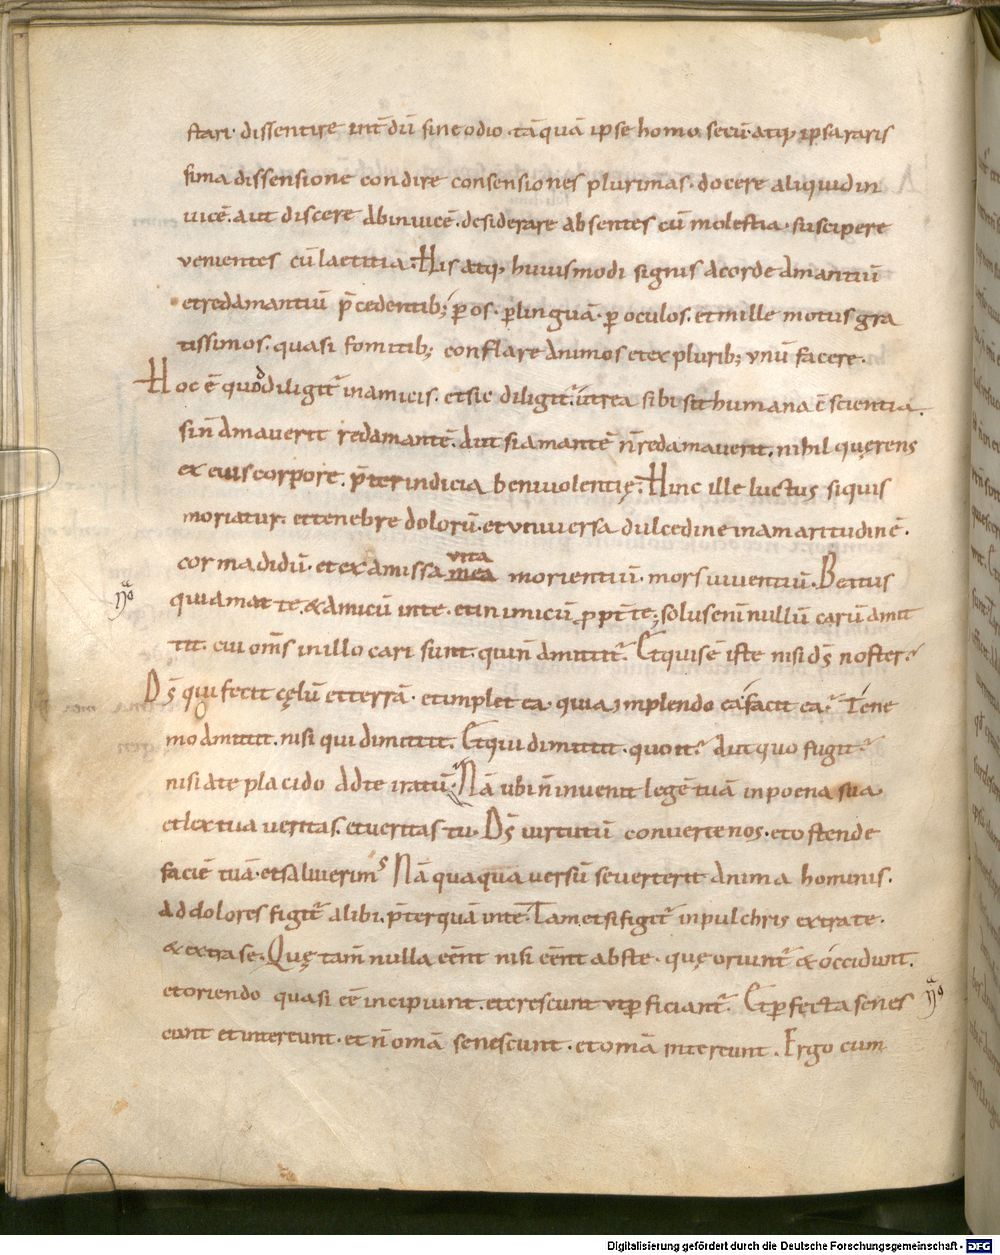 stari. dissentire intdū sine odio. tāquā ipse homo secū. atq; ipsa raris
sima dissensione condire consensiones plurimas. docere aliquid in
uicē. aut discere abinuicē. desiderare absentes cū molestia. suscipere
uenientes cū laetitia. His atq; huiusmodi signis acorde amantiū
et redamantiū p̄cedentib; p̲ os. p̲ linguā. p̲ oculos. et mille motus gra
tissimos. quasi fomitib; conflare animos et ex plurib; vnū facere.
Hoc ē quod diligit᷑ inamicis. et sic diligit᷑. ut rea sibi sit humana c̄scientia.
si n̄ amauerit redamantē. aut si amantē n̄ redamauerit. nihil quęrens
ex eius corpore. p̄ter indicia beniuolentię. Hinc ille luctus siquis
moriatur. et tenebre dolorū. et vniuersa dulcedine inamaritudinē.
cor madidū. et ex amissa vita mea morientiū. mors uiuentiū. Beatus
qui amat te. & amicū inte. et inimicū ppt̄ te; solus enī nullū carū amit
tit. cui om̄s in illo cari sunt. qui n̄ amittit᷑. Et quis ē iste nisi ds̄ noster?
Ds̄ qui fecit cęlū et terrā. et implet ea. quia implendo ea facit ea. Te ne
mo amittit. nisi qui dimittit. Et qui dimittit. quo it? Aut quo fugit?
nisi ate placido ad te iratū. Nā ubi n̄ inuenit legē tuā in poena sua.
et lex tua ueritas. et ueritas tu. Ds̄ uirtutū conuerte nos. et ostende
faciē tuā. et salui erimꝰ. Nā quaqua uersū se uerterit anima hominis.
ad dolores figit᷑ alibi. p̄terquā inte. Tametsi figit᷑ in pulchris extra te.
& extra se. Quę tam̄ nulla eēnt nisi eēnt abs te. quę oriunt᷑ & occidunt.
et oriendo quasi eē incipiunt. et crescunt vt p̲ficiant᷑. Et p̲fecta senes
cunt et intereunt. et n̄ omā senescunt. et omā intereunt. Ergo cum
Digitalisierung gefördert durch die Deutsche Forschungsgemeinschaft - DFG